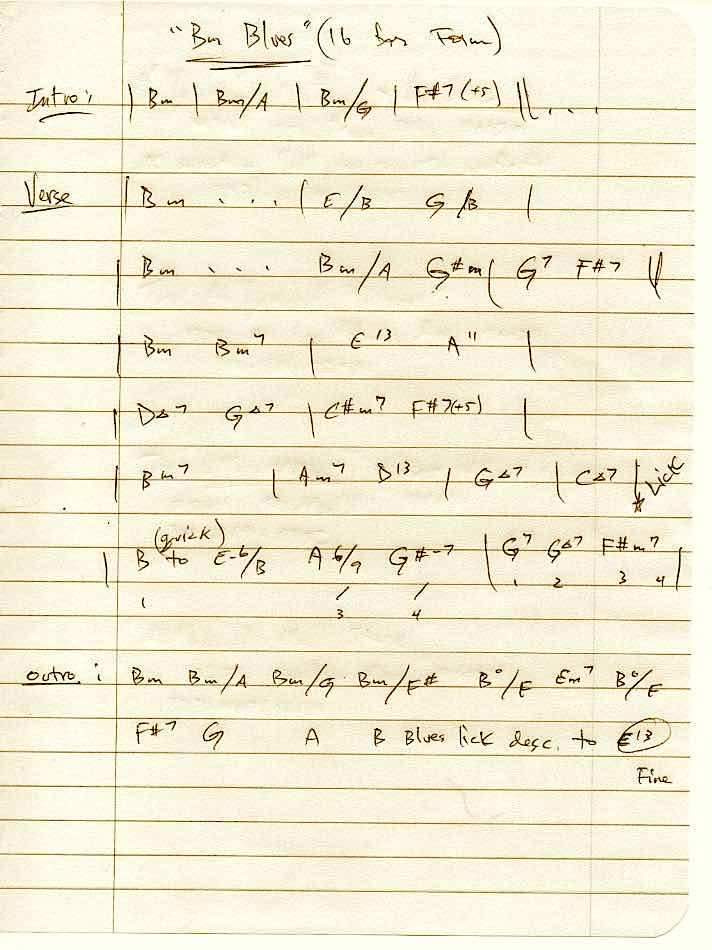 "Bm Blues" (16 bar Form)
Intro: | Bm | Bm/A | Bm/G | F#7(+5) || . . .
Verse | Bm . . . | E/B G/B |
| Bm . . . Bm/A G#m | G7 F#7 ||
| Bm Bm7 | E13 A11 |
| D∆7 G∆7 | C#m7 F#7(+5) |
| Bm7 | Am7 D13 | G∆7 | C∆7 | * Lick
(quick)
| B to E-6/B A6/9 G#-7 | G7 G∆7 F#m7 |
1 3 4 1 2 3 4
Outro: Bm Bm/A Bm/G Bm/F# B°/E Em7 B°/E
F#7 G A B Blues lick desc. to E13
Fine